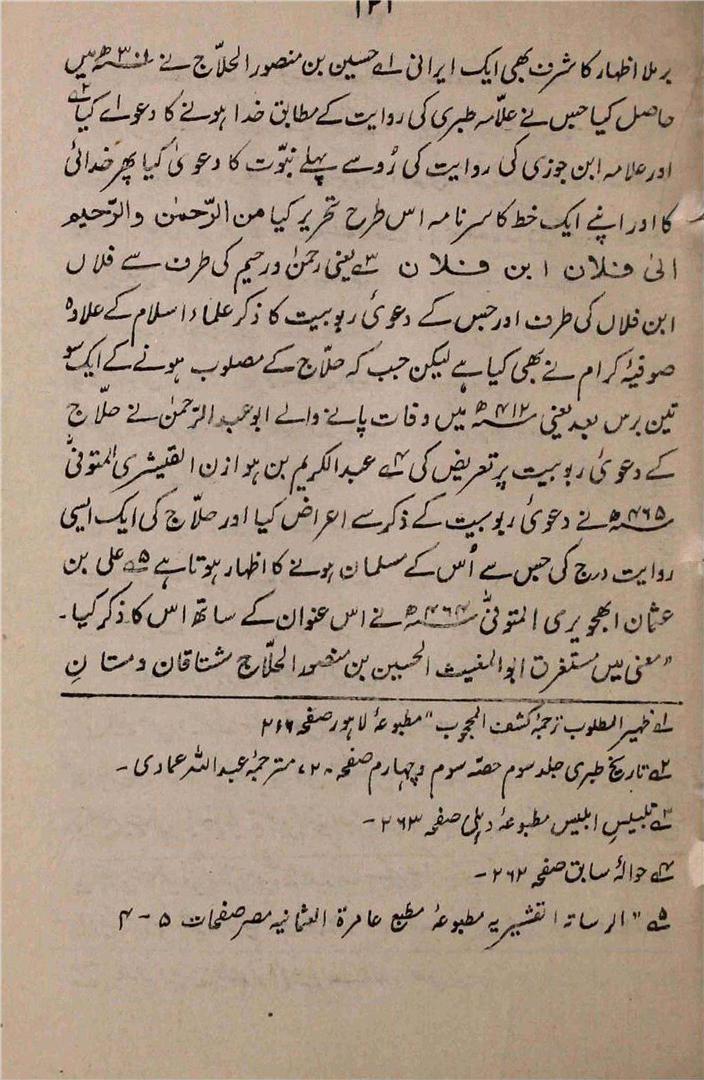 ۱۲۱
برملا اظہار کا شرف بھی ایک ایرانی ۱؎ حسین بن منصور الحلّاج نے ۳۰۱ھ میں
حاصل کیا جس نے علّامہ طبری کی روایت کے مطابق خدا ہونے کا دعواے کیا ۲؎
اور علامہ ابن جوزی کی روایت کی رُو سے پہلے نبوّت کا دعویٰ کیا پھر خدائی
کا اور اپنے ایک خط کا سرنامہ اس طرح تحریر کیا من الرّحمٰن والرّحیم
الیٰ فلان ابن فلان ۳؎ یعنی رحمٰن و رحیم کی طرف سے فلاں
ابن فلاں کی طرف اور جس کے دعویٔ ربوبیت کا ذکر علماء اسلام کے علاوہ
صوفیۂ کرام نے بھی کیا ہے لیکن جب کہ حلّاج کے مصلوب ہونے کے ایک سو
تین برس بعد یعنی ۴۱۲ھ میں وفات پانے والے ابوعبدالرّحمٰن نے حلّاج
کے دعویٔ ربوبیت پر تعریض کی ۴؎ عبدالکریم بن ہوازن القیشری المتوفیٰ
۴۶۵ھ نے دعویٔ ربوبیت کے ذکر سے اعراض کیا اور حلّاج کی ایک ایسی
روایت درج کی جس سے اُس کے مسلمان ہونے کا اظہار ہوتا ہے ۵؎ علی بن
عثمان الھجویری المتوفیٰ ۴۶۴ھ نے اس عنوان کے ساتھ اس کا ذکر کیا۔
"معنی میں مستغرق ابوالمغیث الحسین بن منصور الحلّاج مشتاقان و مستانِ
۱؎ ظہیر المطلوب ترجمۂ کشف المحجوب" مطبوعۂ لاہور صفحہ ۲۶۶
۲؎ تاریخ طبری جلد سوم حصّہ سوم و چہارم صفحہ ۷۲۰، مترجمۂ عبداللہ عمادی۔
۳؎ تلبیسِ ابلیس مطبوعۂ دہلی صفحہ ۲۶۳۔
۴؎ حوالۂ سابق صفحہ ۲۶۲۔
۵؎ "الرسالۃ القشیریہ مطبوعۂ مطبع عامرۃ العثمانیہ مصر صفحات ۵-۴